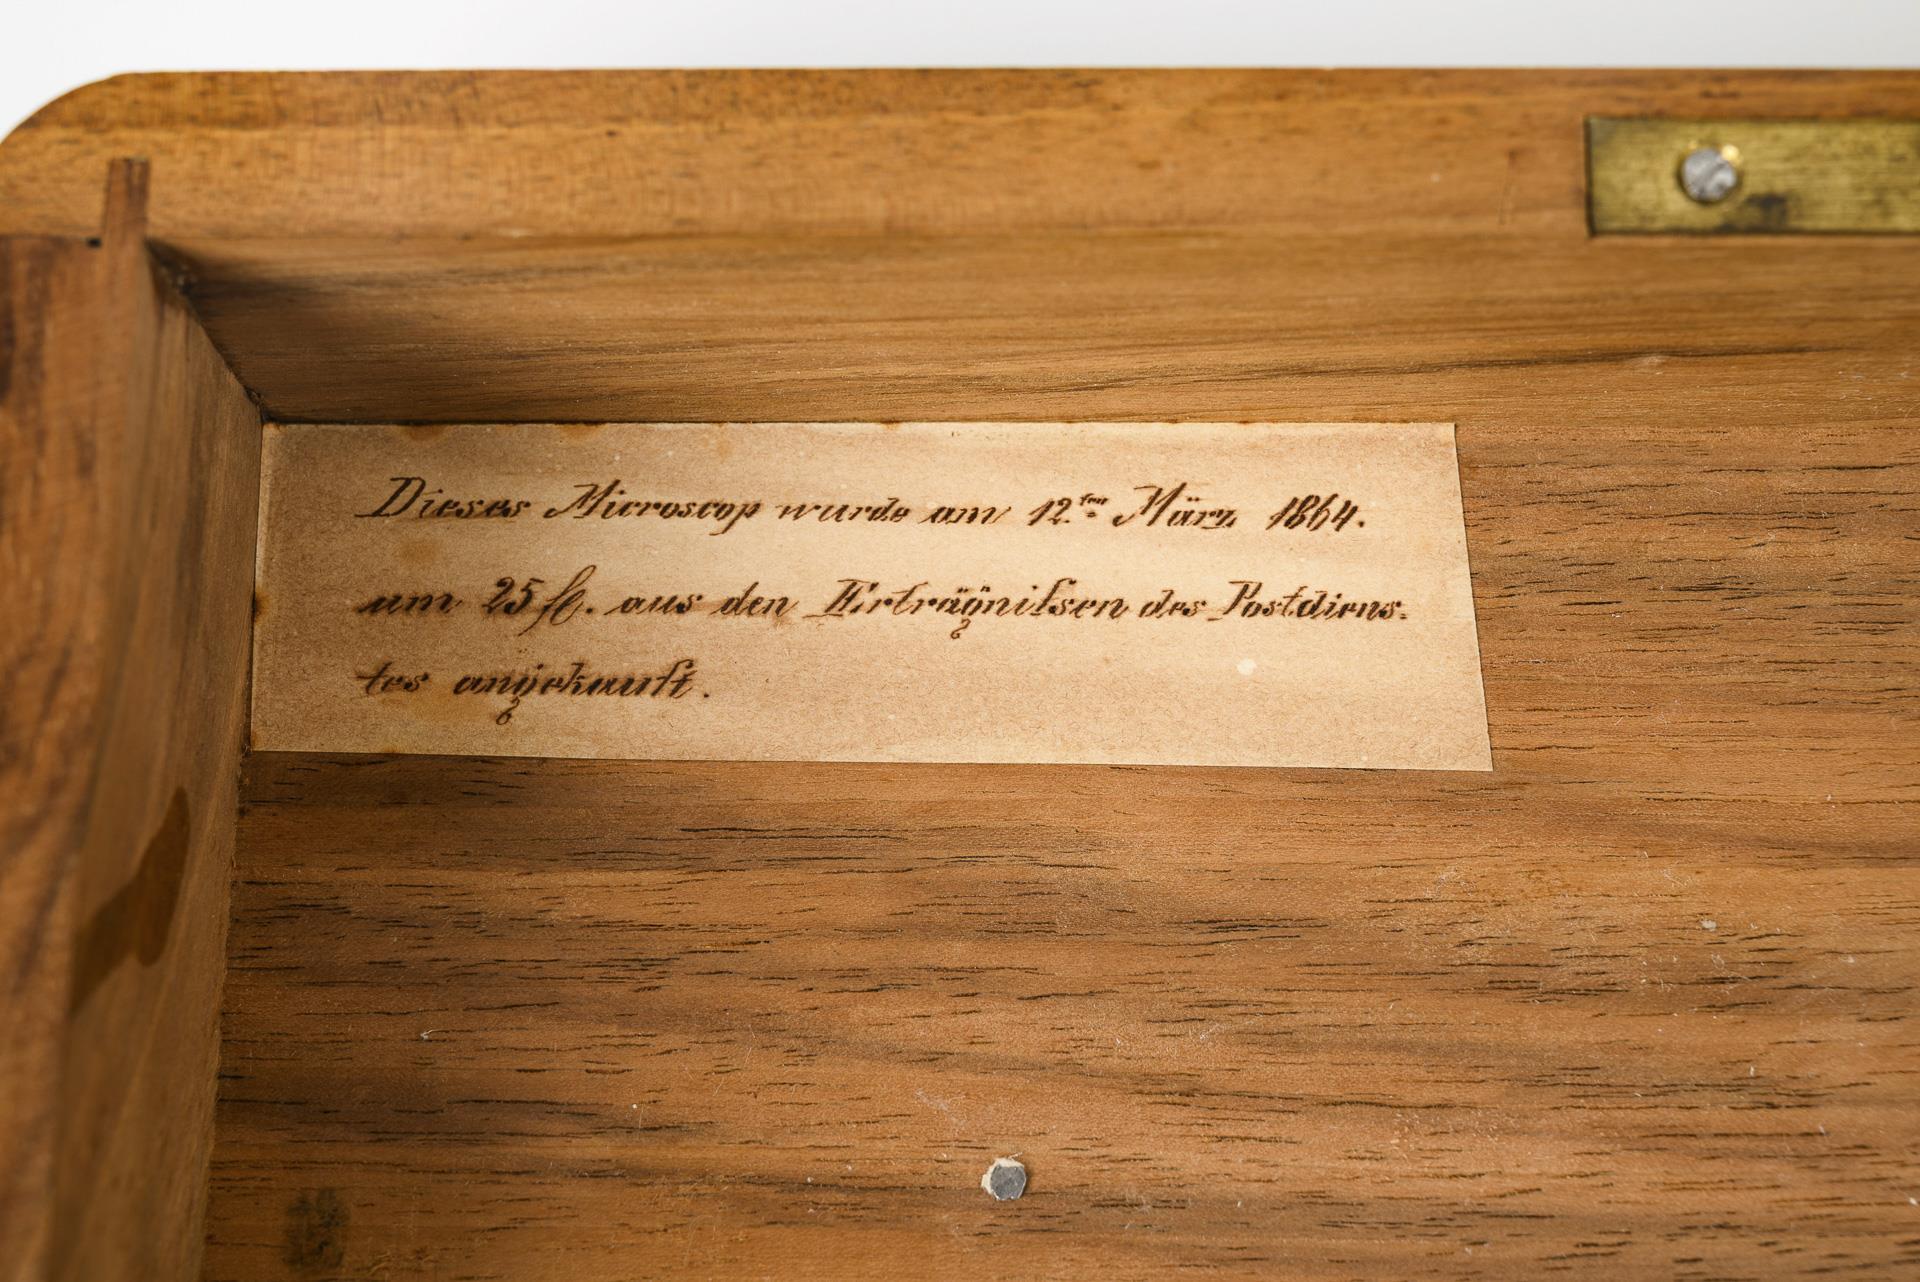 Dieses Microscop wurde am 12.ten März 1864.
um 25 fl. aus den Erträgniſsen des Postdiens-
tes angekauft.